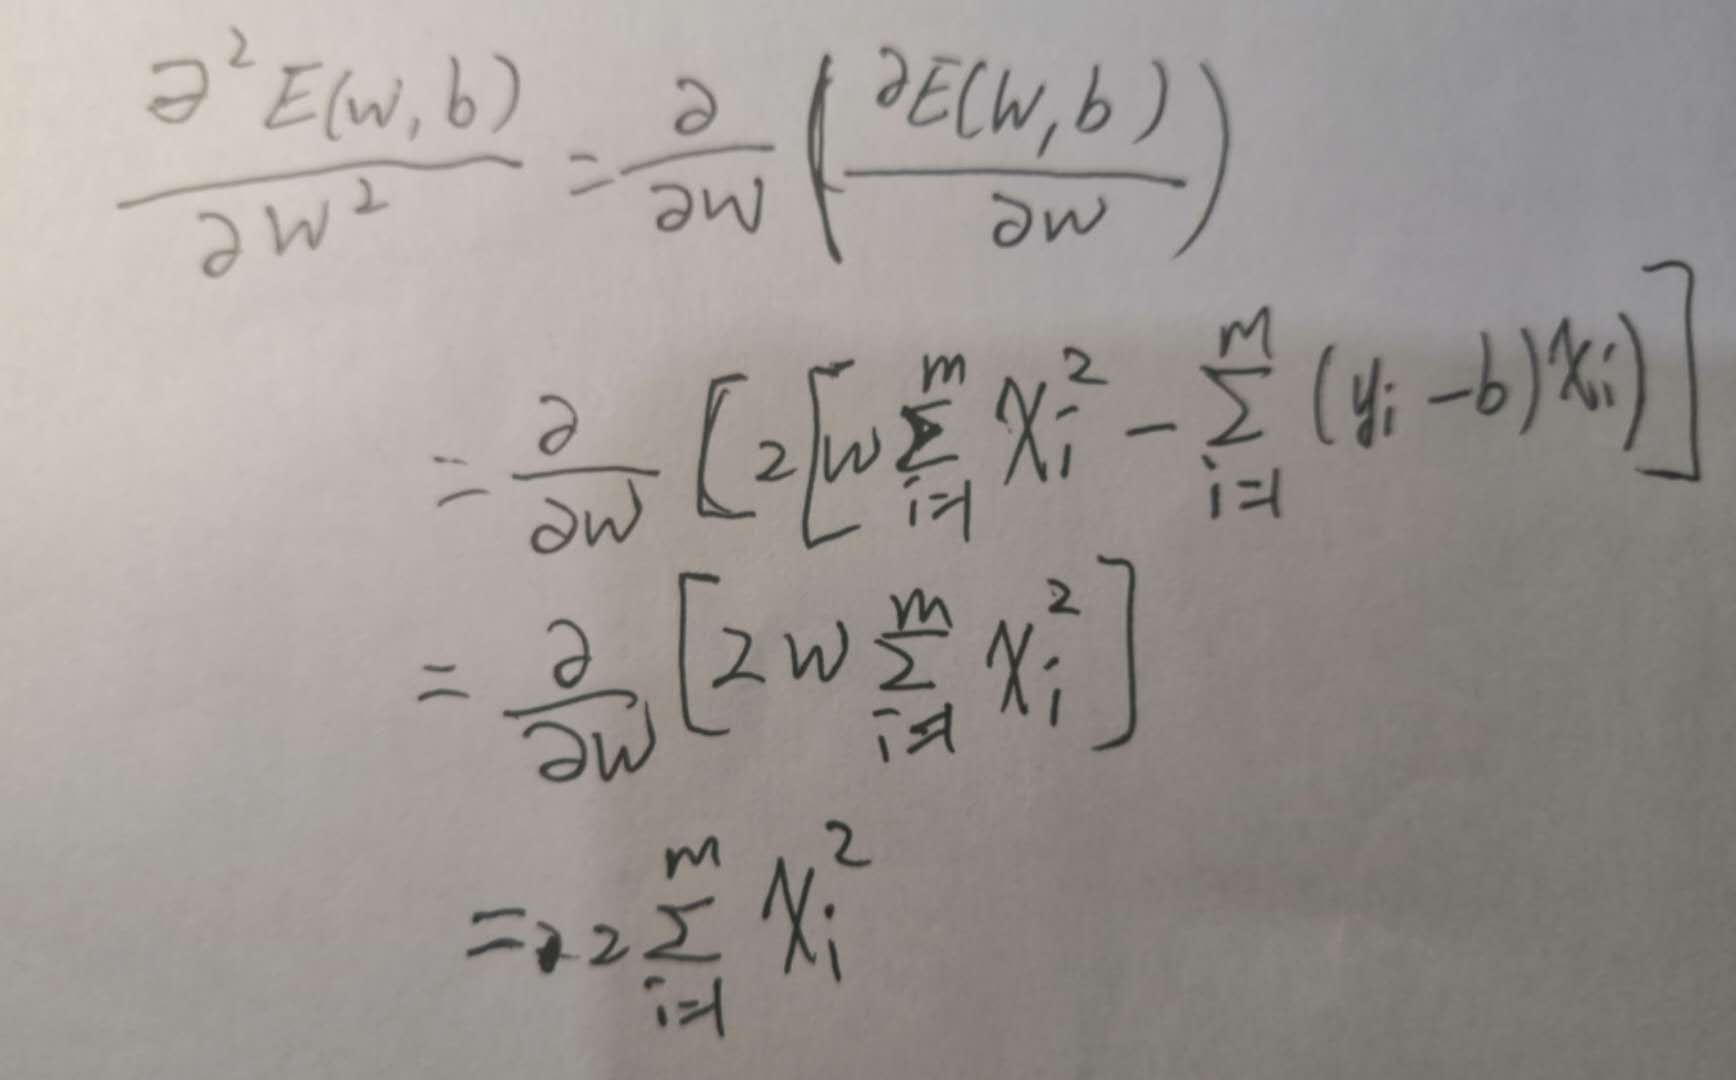 ∂²E(w,b)/∂w² = ∂/∂w (∂E(w,b)/∂w)
= ∂/∂w [2[w∑_{i=1}^{m} x_i² - ∑_{i=1}^{m} (y_i - b)x_i)]
= ∂/∂w [2w∑_{i=1}^{m} x_i²]
= 2∑_{i=1}^{m} x_i²